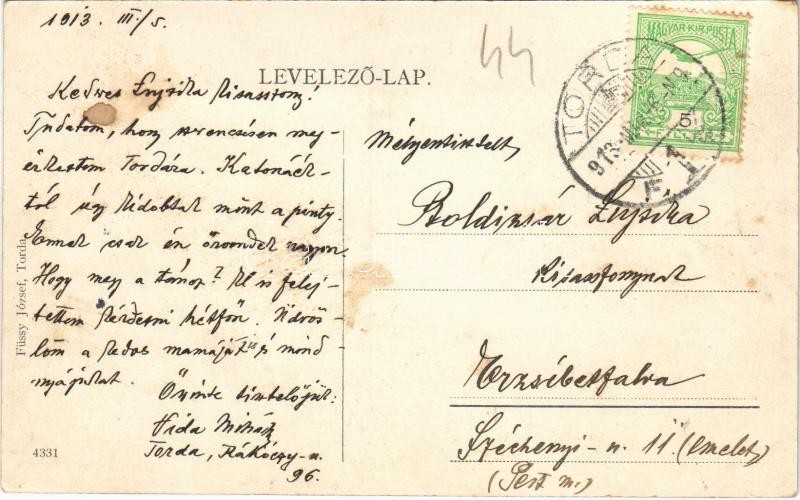 1913. III/5.
LEVELEZŐ-LAP.
44
Kedves Lujzika kisasszony!
Tudatom, hogy szerencsésen meg-
érkeztem Tordára. Katonáék-
tól úgy kidobtak mint a pinty.
Ennek csak én örvendek nagyon.
Hogy megy a tánc? El is felej-
tettem kérdezni hétfőn. Üdvöz-
löm a kedves mamáját is és mind-
nyájukat.
Őszinte tisztelőjük:
Vida Mihály
Torda, Rákóczy-u.
96.
Mélyentisztelt,
Boldizsár Lujzika
kisasszonynak
Erzsébetfalva
Széchenyi-u. 11 (emelet)
(Pest m.)
MAGYAR KIR. POSTA
5
FILLÉR
TORDA
913
Füssy József, Torda
4331